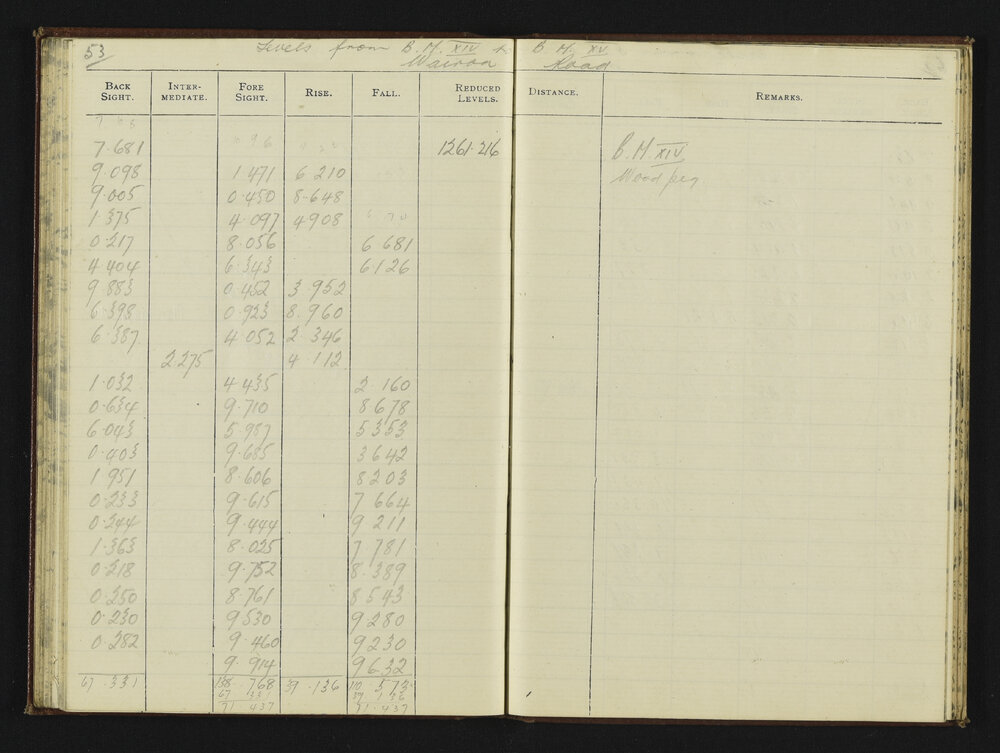 53 Levels from B.M. XIV to B.M. XV.
Wairoa Road
BACK SIGHT. INTER-MEDIATE. FORE SIGHT. RISE. FALL. REDUCED LEVELS. DISTANCE. REMARKS.
7.681 1261.216 B.M. XIV
9.098 1.471 6 210 Wood peg
9.005 0.450 8.648
1.375 4.097 4908
0.217 8.056 6 681
4.404 6.343 6126
9.883 0.452 3.952
6.398 0.923 8.960
6.387 4.052 2.346
2.275 4.112
1.032 4.435 2.160
0.634 9.710 8678
6.043 5.987 5353
0.403 9.685 3642
1 951 8.606 8203
0.233 9.615 7 664
0.244 9.444 9 211
1.363 8.025 7 781
0.218 9.752 8.389
0.250 8.761 8543
0.230 9530 9280
0.282 9.460 9230
9.914 9632
67.331 138.768 39.136 110.573
67 331 39 136
71.437 71.437